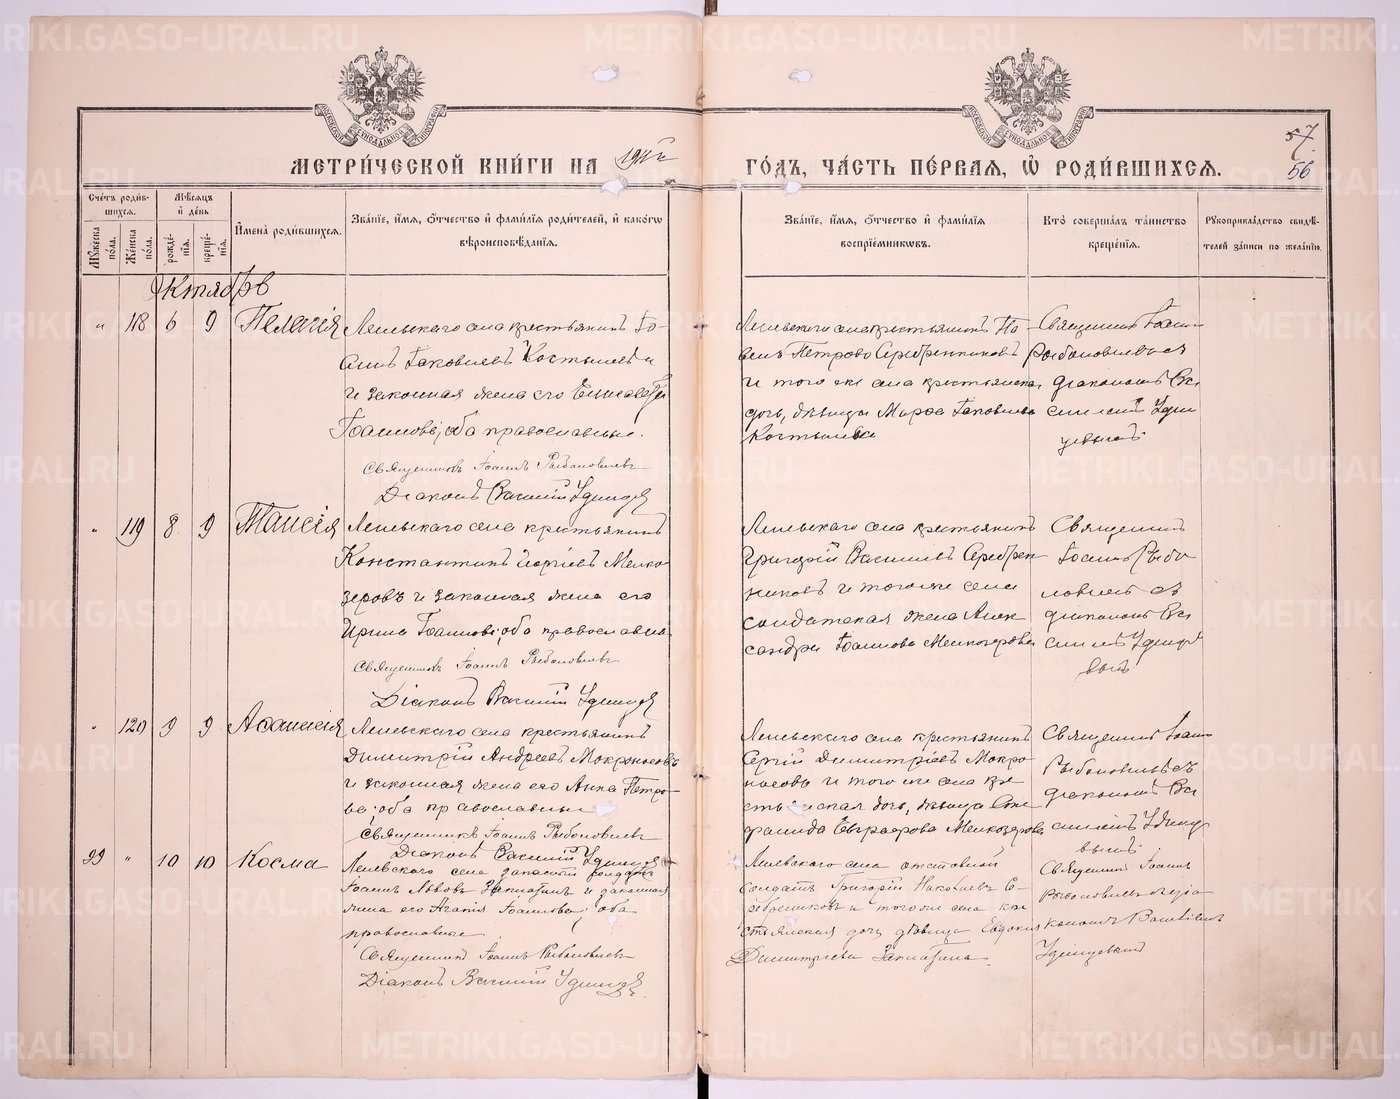 МЕТРИЧЕСКОЙ КНИГИ НА 1911 г
ГОДЪ, ЧАСТЬ ПЕРВАЯ, Ѡ РОДИВШИХСЯ.
57
56
Счетъ родив-
шихся.
Мѣсяцъ
и день
Мужеска
пола.
Женска
пола.
рожде-
нія.
креще-
нія.
Имена родившихся.
Званіе, имя, отчество и фамилія родителей, и какогѡ
вѣроисповѣданія.
Званіе, имя, отчество и фамилія
воспріемниковъ.
Кто совершалъ таинство
крещенія.
Рукоприкладство свидѣ-
телей записи по желанію.
Октябрь
" 118 6 9 Пелагія
крестьянинъ Іо-
аннъ Іаковлевъ Костылевъ и
и законная жена его Елисавета
Іоаннова, оба православные.
Священникъ Іоаннъ Рыболовлевъ
Діаконъ Василій Удинцевъ
села крестьянинъ Па-
велъ Петровъ Серебренниковъ
и того же села крестьянская
дочь, дѣвица Марѳа Іаковлева
Костылева
Священникъ Іоаннъ
Рыболовлевъ съ
діакономъ Ва
силіемъ Удин
цевымъ.
" 119 8 9 Таисія
села крестьянинъ
Константинъ Георгіевъ Мелко-
зеровъ и законная жена его
Ирина Іоаннова, оба православны.
Священникъ Іоаннъ Рыболовлевъ
Діаконъ Василій Удинцевъ
села крестьянинъ
Григорій Васильевъ Серебрен-
никовъ и того же села
солдатская жена Алек
сандра Іоаннова Мелкозерова
Священникъ
Іоаннъ Рыбо
ловлевъ съ
діакономъ Ва
силіемъ Удинце
вымъ
" 120 9 9 Аѳанасія
села крестьянинъ
Димитрій Андреевъ Мокроносовъ
и законная жена его Анна Петро-
ва, оба православные
Священникъ Іоаннъ Рыболовлевъ
Діаконъ Василій Удинцевъ
села крестьянинъ
Сергій Димитріевъ Мокро
носовъ и того же села кре
стьянская дочь, дѣвица Се
рафима Евграфова Мелкозерова
Священникъ Іоаннъ
Рыболовлевъ съ
діакономъ Ва
силіемъ Удинце
вымъ
99 " 10 10 Косма
села запасный солдатъ
Іоаннъ Львовъ Заплатинъ и законная
жена его Агапія Іоаннова, оба
православные
Священникъ Іоаннъ Рыболовлевъ
Діаконъ Василій Удинцевъ
села отставной
солдатъ Григорій Николаевъ Се-
ребрениковъ и того же села кре
стьянская дочь дѣвица Евдокія
Димитріева Заплатина.
Священникъ Іоаннъ
Рыболовлевъ съ діа
кономъ Василіемъ
Удинцевымъ
METRIKI.GASO-URAL.RU